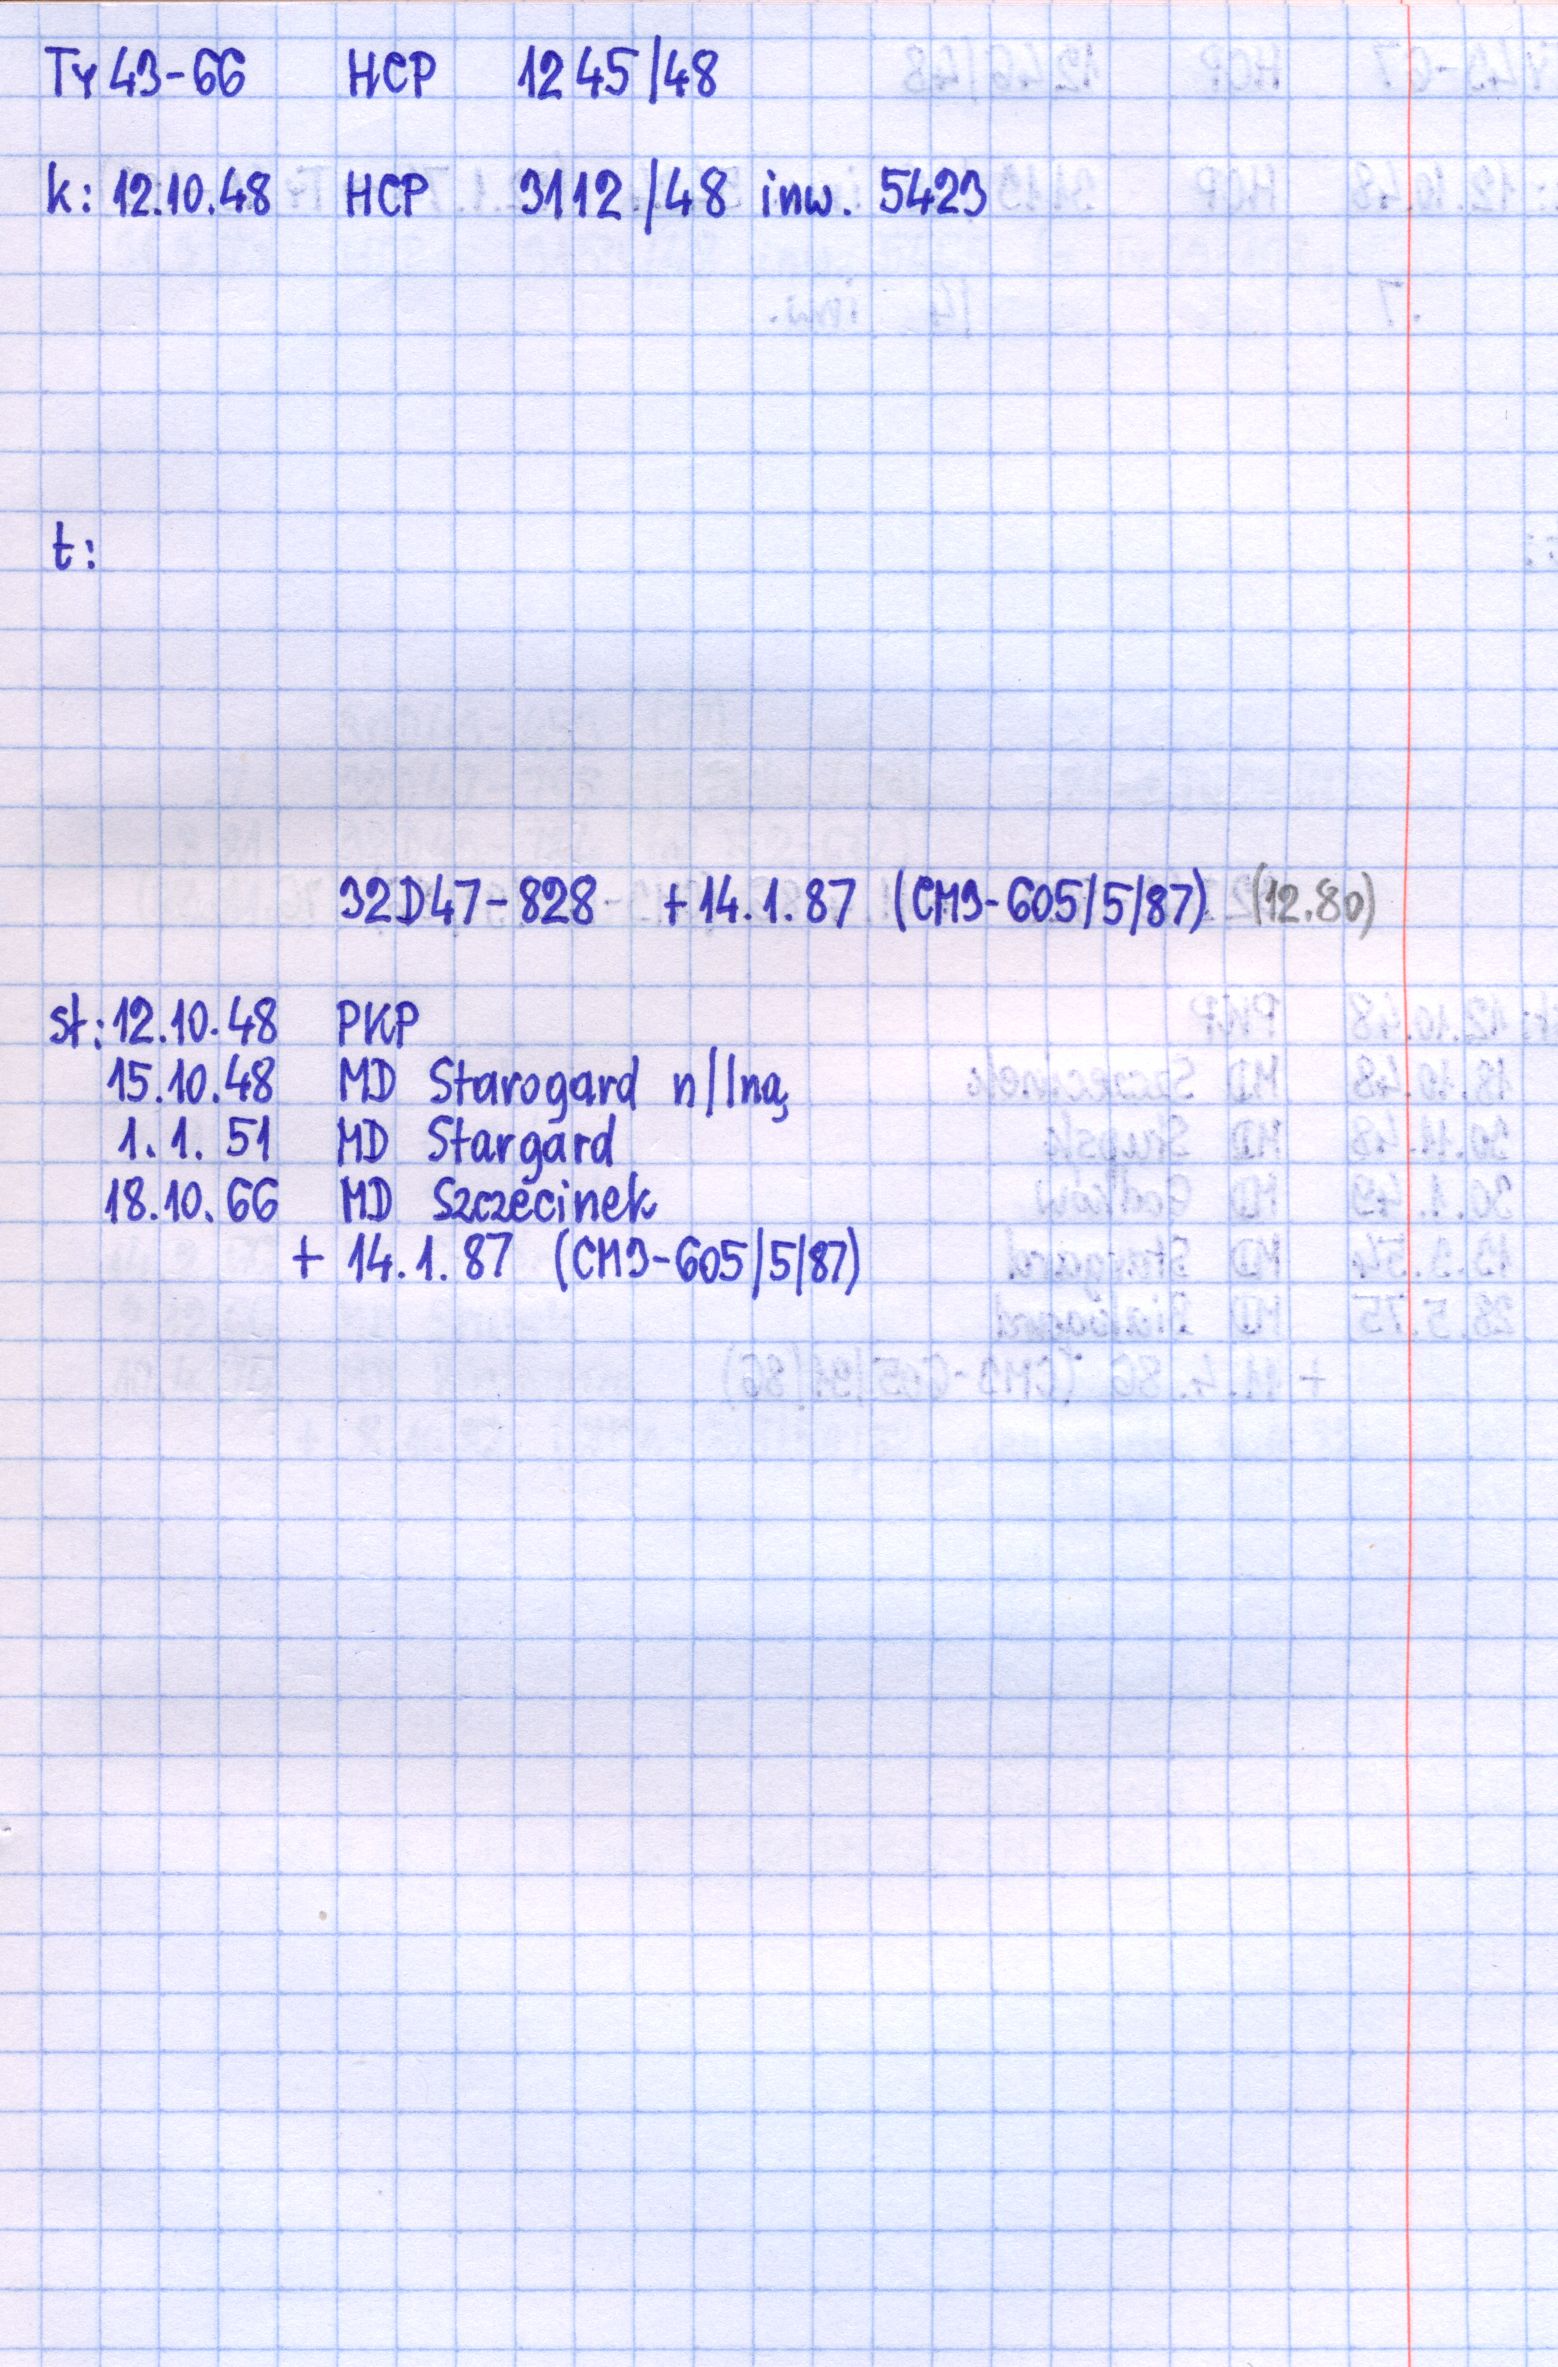 Ty43-66 HCP 1245/48
k: 12.10.48 HCP 3112/48 inw. 5423
t:
32D47-828 +14.1.87 (CM3-605/5/87) (12.80)
st: 12.10.48 PKP
15.10.48 MD Starogard n/Iną
1.1.51 MD Stargard
18.10.66 MD Szczecinek
+ 14.1.87 (CM3-605/5/87)